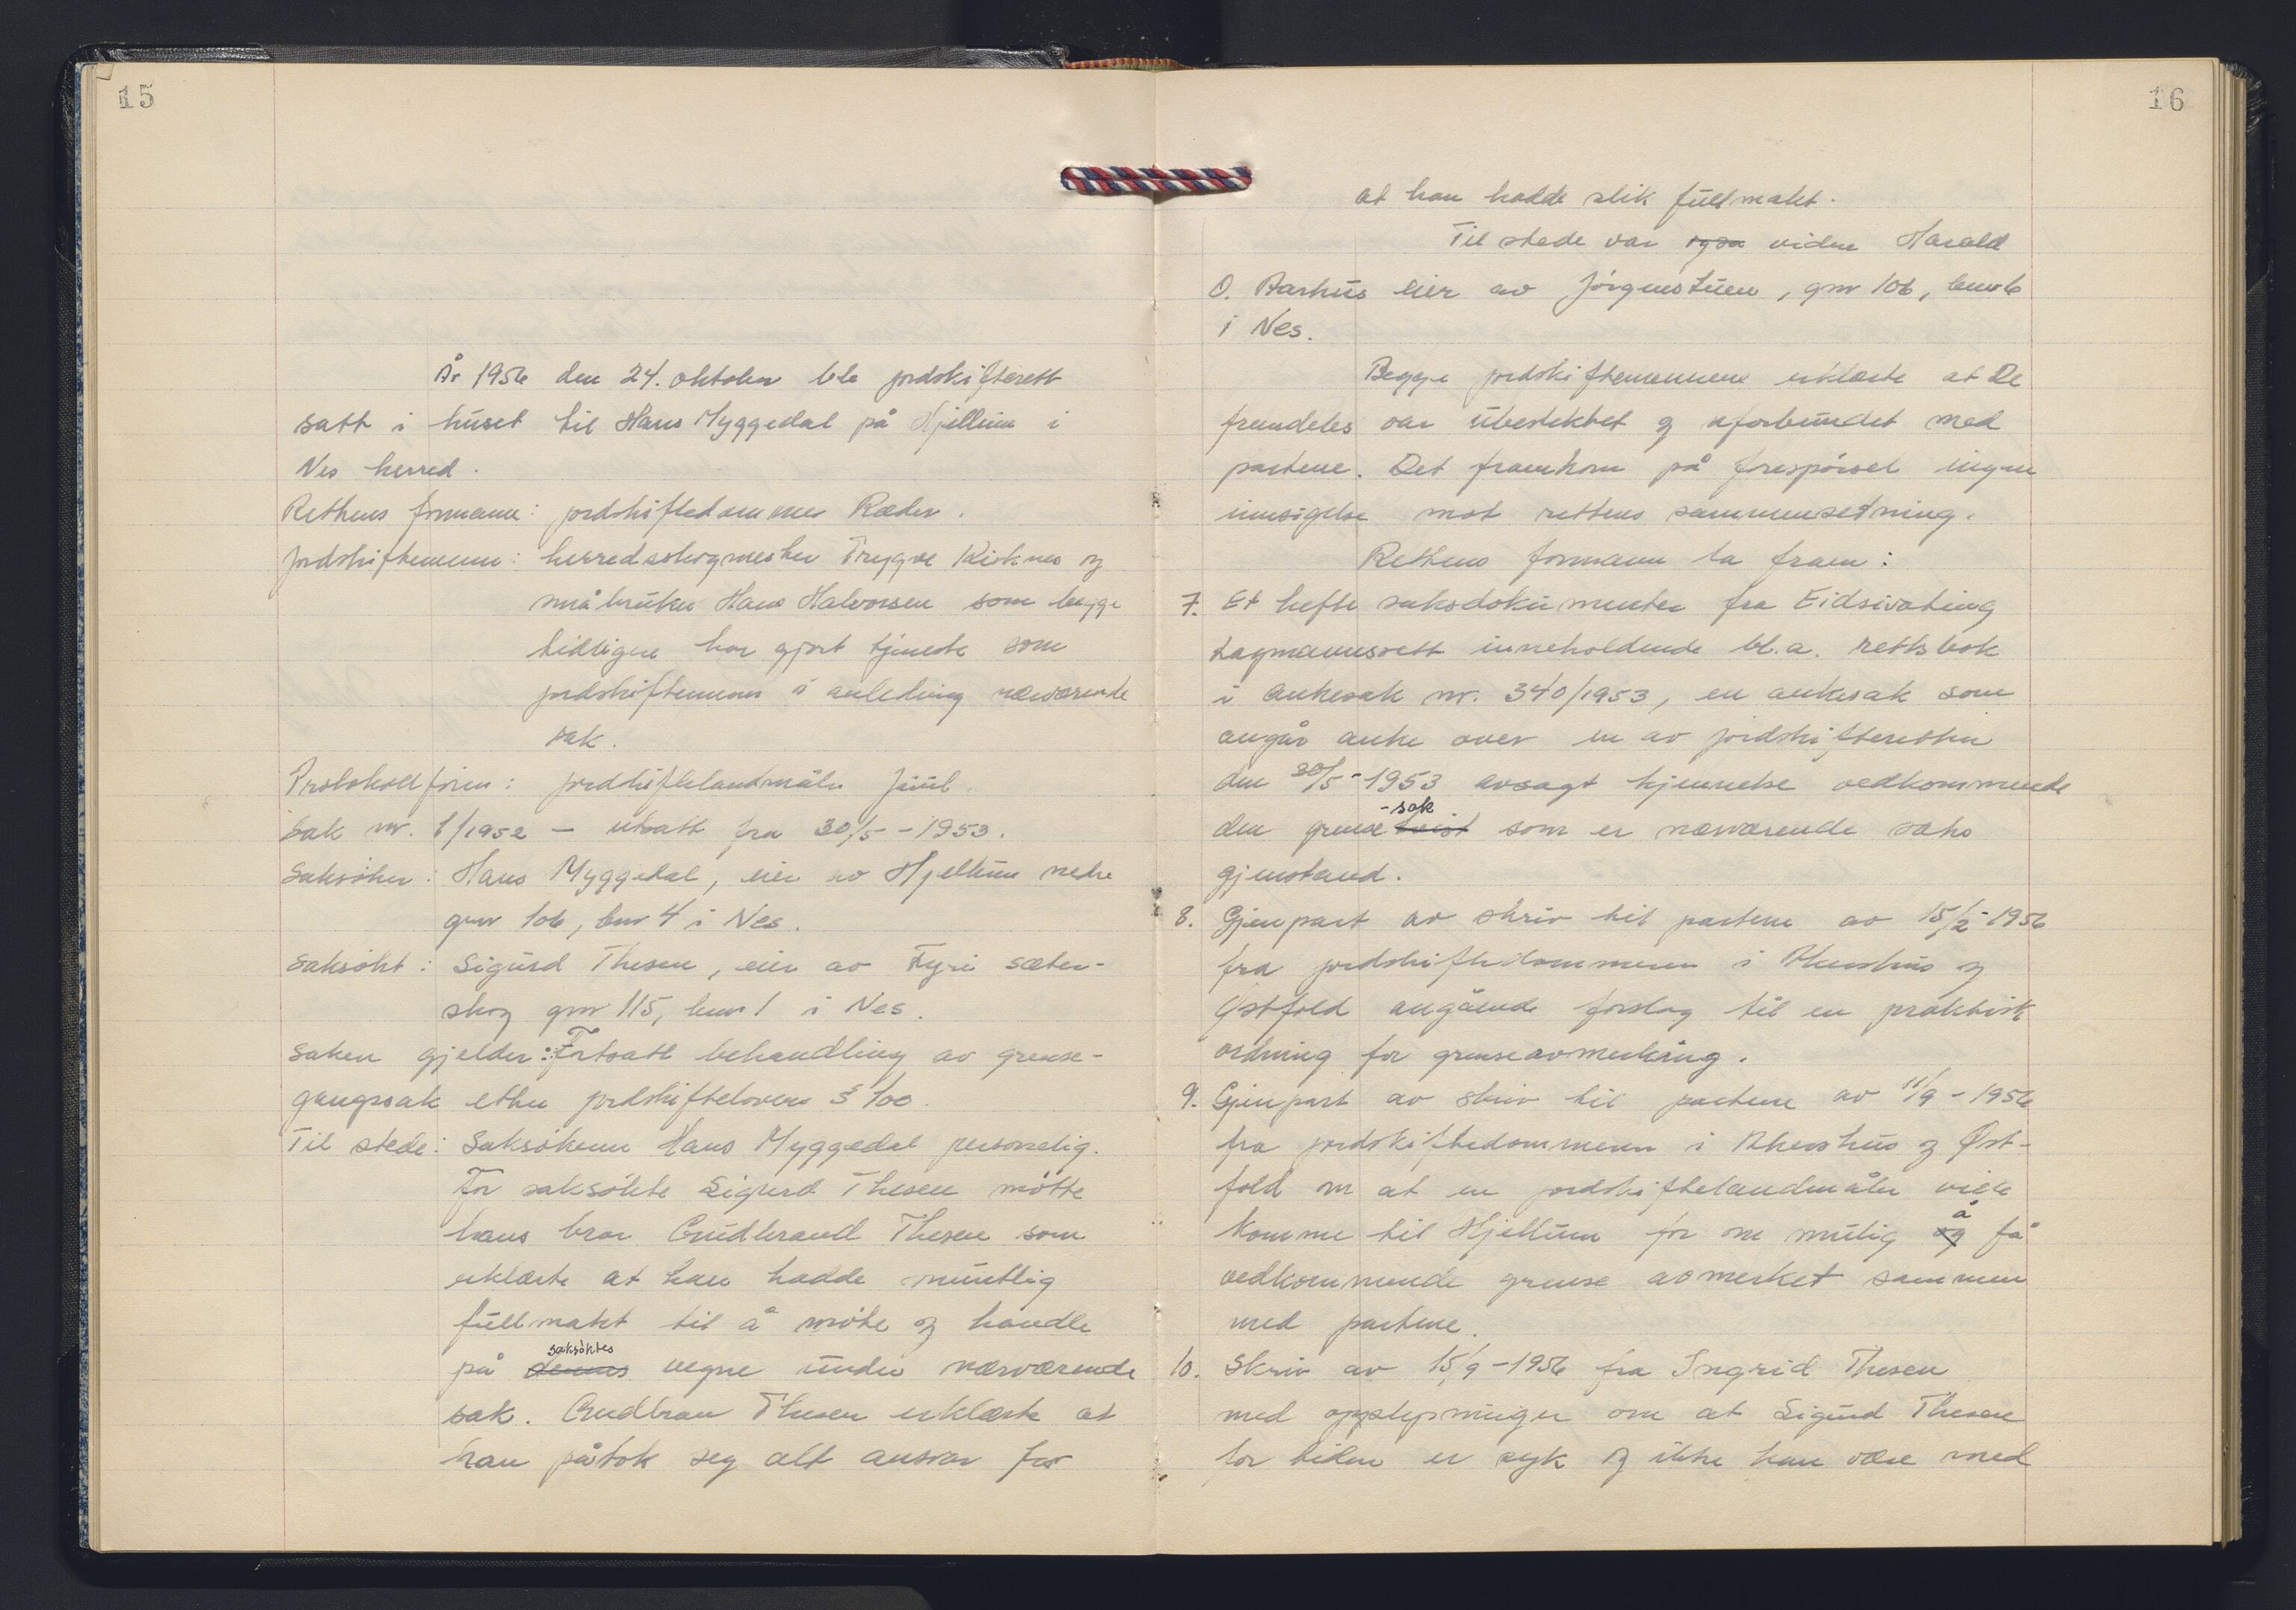 15
År 1956 den 24. oktober ble jordskifterett
satt i huset til Hans Myggedal på Hjellum i
Nes herred.
Rettens formann: jordskiftedommer Ræder.
Jordskiftemenn: herredsskogmester Trygve Kisknes og
småbruker Hans Halvorsen som begge
tidligere har gjort tjeneste som
jordskiftemenn i anledning nærværende
sak.
Protokollfører: jordskiftelandmåler Juul.
Sak nr. 1/1952 – utsatt fra 30/5-1953.
Saksøker: Hans Myggedal, eier av Hjellum nedre
gnr 106, bnr 4 i Nes.
Saksøkt: Sigurd Thesen, eier av Fyri sæter-
skog gnr 115, bnr 1 i Nes.
Saken gjelder: Fortsatt behandling av grense-
gangssak etter jordskiftelovens § 100.
Til stede: Saksøkeren Hans Myggedal personelig.
For saksøkte Sigurd Thesen møtte
hans bror Gudbrand Thesen som
erklærte at han hadde muntlig
fullmakt til å møte og handle
saksøktes
på dennes vegne under nærværende
sak. Gudbran Thesen erklærte at
han påtok seg alt ansvar for
16
at han hadde slik fullmakt.
Til stede var også vidne Harald
O. Aarhus eier av Jørgenstuen, gnr 106, bnr 6
i Nes.
Begge jordskiftemennene erklærte at De
fremdeles var ubeslektet og uforbundet med
partene. Det framkom på forespørsel ingen
innsigelse mot rettens sammensetning.
Rettens formann la fram:
7. Et hefte saksdokumenter fra Eidsivating
Lagmannsrett inneholdende bl.a. rettsbok
i ankesak nr. 340/1953, en ankesak som
angår anke over en av jordskifteretten
den 30/5-1953 avsagt kjennelse vedkommende
-sak
den grensetvist som er nærværende saks
gjenstand.
8. Gjenpart av skriv til partene av 15/2-1956
fra jordskiftedommeren i Akershus og
Østfold angående forslag til en praktisk
ordning for grenseavmerking.
9. Gjenpart av skriv til partene av 11/9-1956
fra jordskiftedommeren i Akershus og Øst-
fold om at en jordskiftelandmåler ville
å
komme til Hjellum for om mulig og få
vedkommende grense avmerket sammen
med partene.
10. Skriv av 15/9-1956 fra Ingrid Thesen
med opplysninger om at Sigurd Thesen
for tiden er syk og ikke kan være med